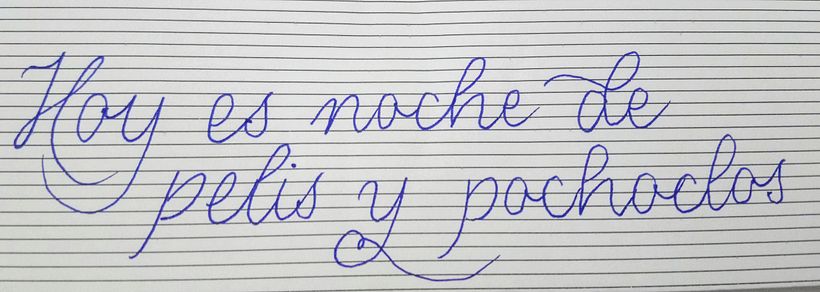 Hoy es noche de
pelis y pochoclos